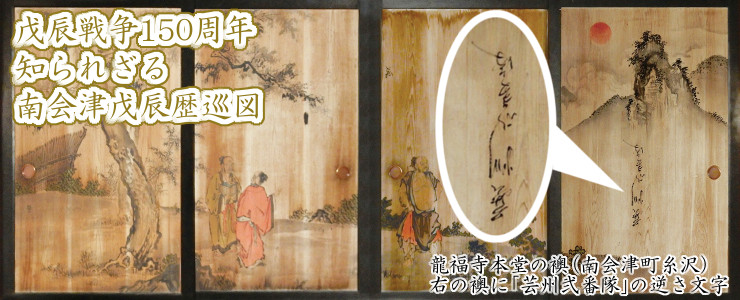 戊辰戦争150周年
知られざる
南会津戊辰歴巡図
龍福寺本堂の襖(南会津町糸沢)
右の襖に「芸州弐番隊」の逆さ文字